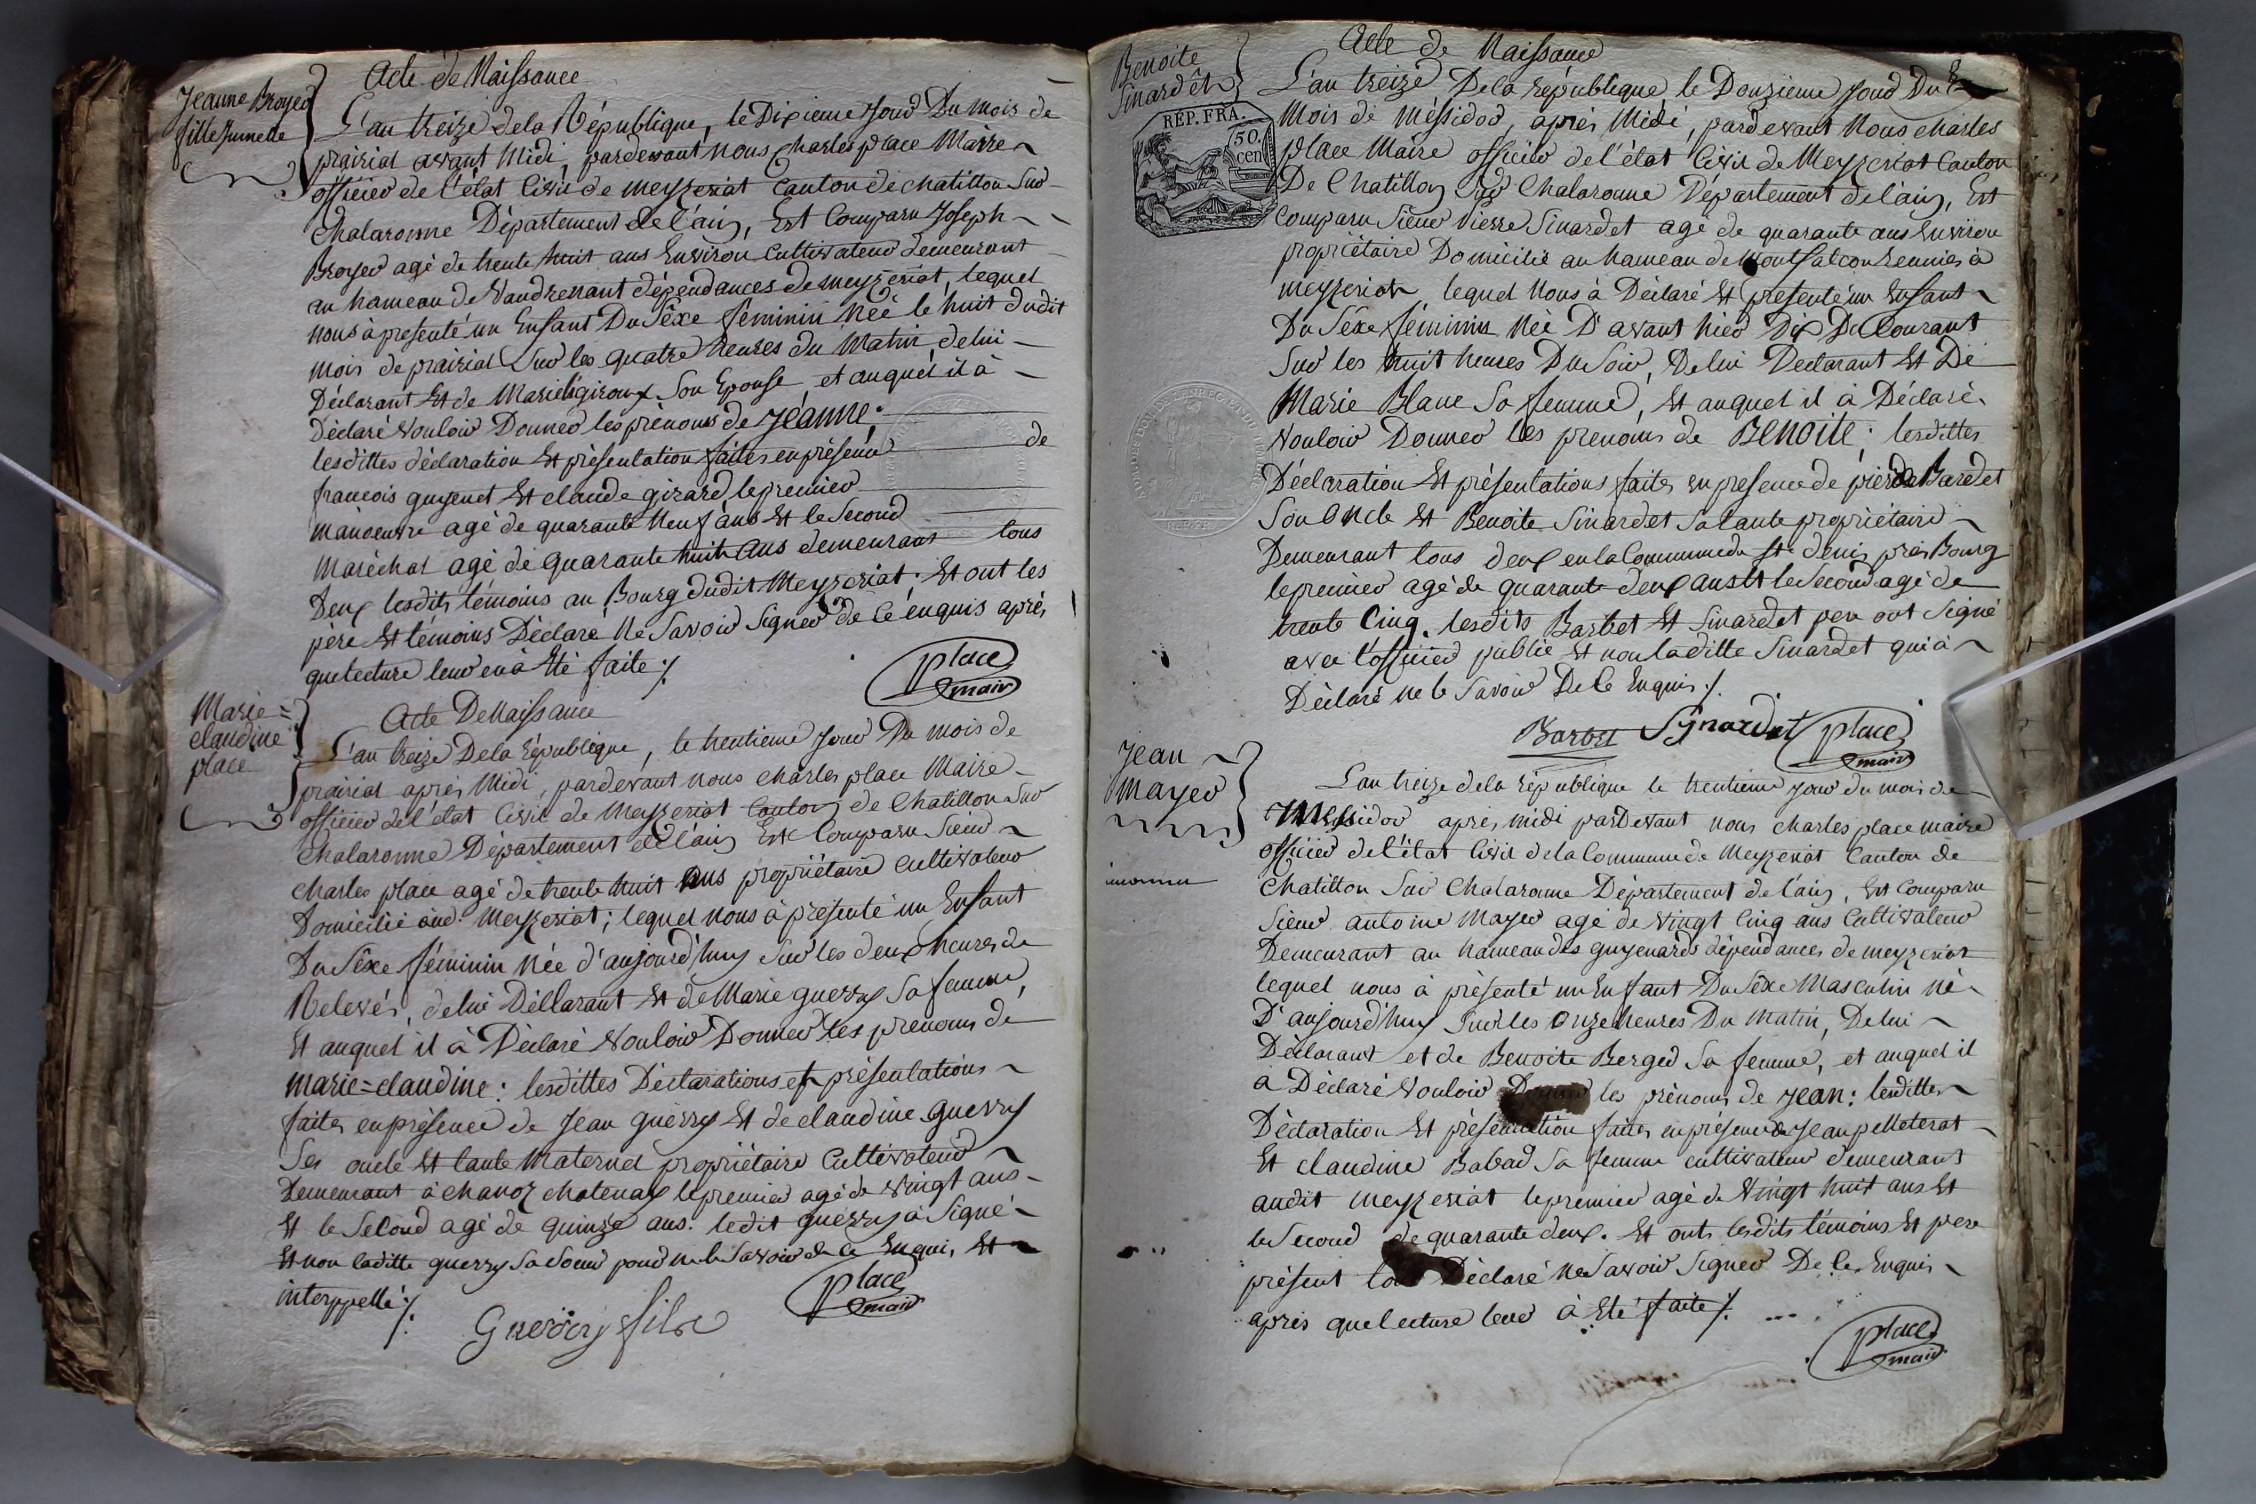 Jeanne Broyer
fille Jumelle
Acte de Naissance
L'an treize de la République, le Dixieme Jour Du mois de
prairial avant Midi, pardevant nous charles place Maire
officier de l'état Civil de meyzeriat Canton de chatillon Sur
Chalaronne Département de l'ain, Est Comparu Joseph
Broyer agé de trente huit ans Environ Cultivateur demeurant
au hameau de Vaudrenant dépendances de meyzeriat, lequel
nous à presenté un Enfant Du Sêxe féminin Née le huit dudit
mois de prairial Sur les quatre heures du Matin de lui
Déclarant Et de Marie giroux Son Epouse et auquel il à
Déclaré Vouloir Donner les prénoms de Jéanne.
lesdittes déclaration Et présentation faites en présence de
francois guyenet Et claude girard le premier
manoeuvre agé de quarante Neuf ans Et le Second
Maréchal agé de quarante huit ans demeurant tous
Deux lesdits témoins au Bourg dudit Meyzeriat; Et ont les
père Et témoins Déclaré Ne Savoir Signer de Ce enquis après
que lecture leur en à Eté faite ./.
place
maire
Marie=
claudine
place
Acte De Naissance
L'an treize De la République, le trentieme jour Du mois de
prairial après Midi, pardevant nous charles place Maire
officier de l'état Civil de Meyzeriat Canton de Chatillon Sur
Chalaronne Département de l'ain Est Comparu Sieur
charles place agé de trente huit ans propriétaire Cultivateur
Domicilié aud. Meyzeriat; lequel nous à présenté un Enfant
Du Sêxe féminin Née d'aujourd'huy Sur les deux heures de
Relevés, de lui Déclarant Et de Marie guerry Sa femme,
Et auquel il à Déclaré Vouloir Donner les prenoms de
marie=claudine: lesdittes Déclarations et présentations
faites en présence de Jean guerry Et de claudine guerry
Ses oncle Et tante Maternel propriétaire Cultivateur
Demeurant à chanoz chatenay le premier agé de Vingt ans
Et le Second agé de quinze ans. ledit guerry à Signé
Et non laditte guerry Sa Soeur pour ne le Savoir de ce Enqui, Et
interppellé ./.
place
maire
Guerry fils
Benoite
Sinardêt
Acte de Naissance
L'an treize De la République le Douzieme jour Du
REP. FRA.
50.
cen
Mois de Méssidor, après Midi, pardevant Nous charles
place Maire officier de l'état Civil de Meyzeriat Canton
De Chatillon Sur Chalaronne Département de l'ain, Est
Comparu Sieur Pierre Sinardet agé de quarante ans Environ
propriétaire Domicilié au hameau de Montfalcon Reunies à
meyzeriat, lequel Nous à Déclaré Et présenté un Enfant
Du Sêxe féminin Née D'avant hier Dix De Courant
Sur les huit heures Du Soir, De lui Declarant Et De
Marie Blanc Sa femme, Et auquel il à Déclaré
Vouloir Donner les prenoms de BENOITE: lesdittes
Déclaration Et présentations faites en presence de pierre Bardet
Son Oncle Et Benoite Sinardet Sa tante propriétaire
Demeurant tous deux en la Commune de St denis près Bourg
le premier agé de quarante deux ans Et le Second agé de
trente Cinq. lesdits Barbet Et Sinardet pere ont Signé
avec l'officier public Et non laditte Sinardet qui à
Déclaré ne le Savoir De Ce Enquis ./.
Barbet Synardet place
maire
Jean
Mayer
L'an treize de la République le trentieme jour du mois de
Messidor après midi parDevant nous charles place maire
officier de l'état Civil de la Commune de Meyzeriat Canton de
Chatillon Sur Chalaronne Département de l'ain, Est Comparu
Sieur antoine Mayer agé de Vingt Cinq ans Cultivateur
Demeurant au hameau des guyenards dépendances de meyzeriat
lequel nous à présenté un Enfant Du Sêxe Masculin né
D'aujourd'huy Sur les onze heures Du Matin, De lui
Déclarant et de Benoite Berger Sa femme, et auquel il
à Déclaré Vouloir Donner les prénoms de Jean: lesdittes
Déclaration Et présentation faites en présence de Jean pelleterat
Et claudine Babad Sa femme cultivateur demeurant
audit meyzeriat le premier agé de Vingt huit ans Et
le Second de quarante deux. Et onts lesdits témoins Et pere
présent tous Déclaré Ne Savoir Signer De Ce Enquis
après que lecture leur à Eté faite ./.
place
maire